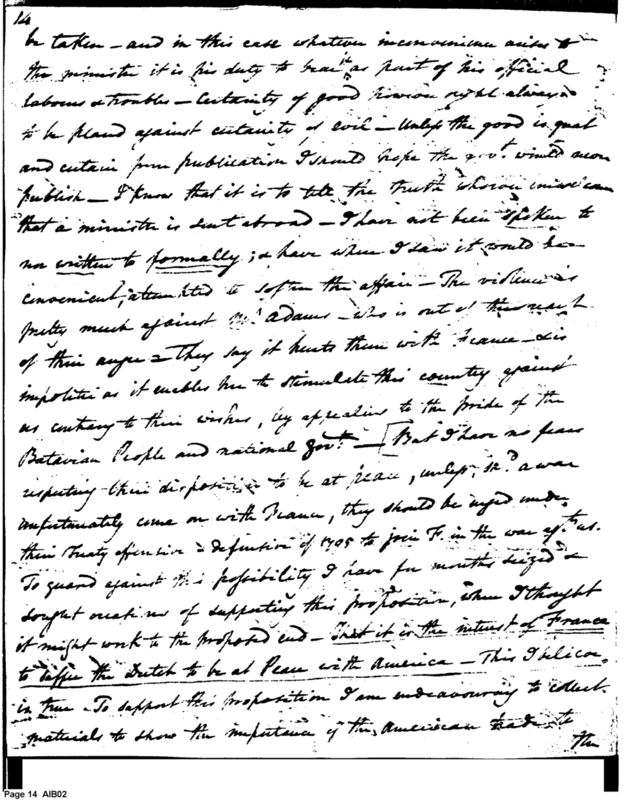 14
be taken – and in this case whatever inconvenience arises to
the minister it is his duty to bear it as part of his official
labours & troubles – Certainty of good sh'd always
to be placed against certainty of evil – Unless the good is great
and certain from publication I should hope the gov.t would never
publish – I know that it is to tell the truth
that a minister is sent abroad – I have not been spoken to
nor written to formally; & have when I saw it would be
convenient, attempted to soften the affair – The violence is
pretty much against Mr Adams – who is out of the reach
of their anger – They say it hurts them with France – & is
impolitic as it enables her to stimulate this country against
us contrary to their wishes, by appealing to the pride of the
Batavian People and national Gov.t – [But I have no fears
respecting their disposition to be at peace, unless, sh.d a war
unfortunately come on with France, they should be urged under
their Treaty offensive & defensive of 1795 to join F. in the war ag.st us.
To guard against this possibility I have for months seized &
sought occasions of supporting this proposition, when I thought
it might work to the proposed end – That it is the interest of France
to suffer the Dutch to be at Peace with America – This I believe
is true – To support this proposition I am endeavouring to collect
materials to show the importance of the American trade to
the
Page 14 AIB02